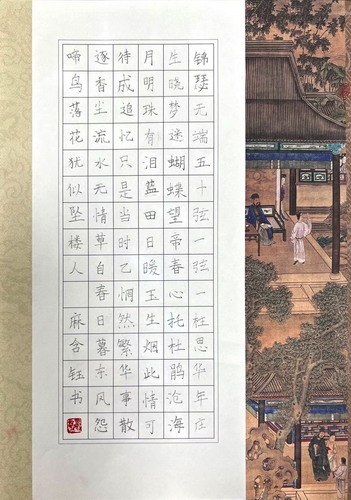 锦瑟无端五十弦一弦一柱思华年庄
生晓梦迷蝴蝶望帝春心托杜鹃沧海
月明珠有泪蓝田日暖玉生烟此情可
待成追忆只是当时已惘然繁华事散
逐香尘流水无情草自春日暮东风怨
啼鸟落花犹似坠楼人 麻含钰书